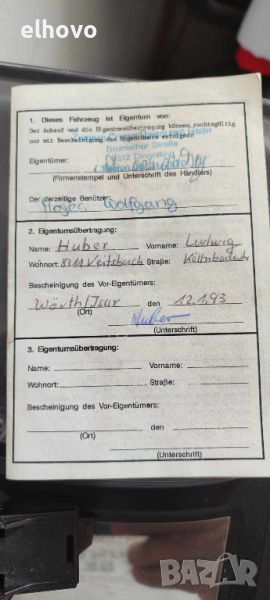 elhovo
1. Dieses Fahrzeug ist Eigentum von:
Der Ankauf und die Eigentumsübertragung können rechtsgültig
nur mit Bescheinigung des Eigentümers erfolgen
GmbH
Straße
Eigentümer:
(Firmenstempel und Unterschrift des Händlers)
Der derzeitige Benützer
Wolfgang
2. Eigentumsübertragung:
Name: Huber Vorname: Ludwig
Wohnort: 8311 Veitsbuch Straße:
Bescheinigung des Vor-Eigentümers:
Wörth/Isar den 12.1.93
(Ort) Huber
(Unterschrift)
3. Eigentumsübertragung:
Name: Vorname:
Wohnort: Straße:
Bescheinigung des Vor-Eigentümers:
den
(Ort)
(Unterschrift)
BAZAR